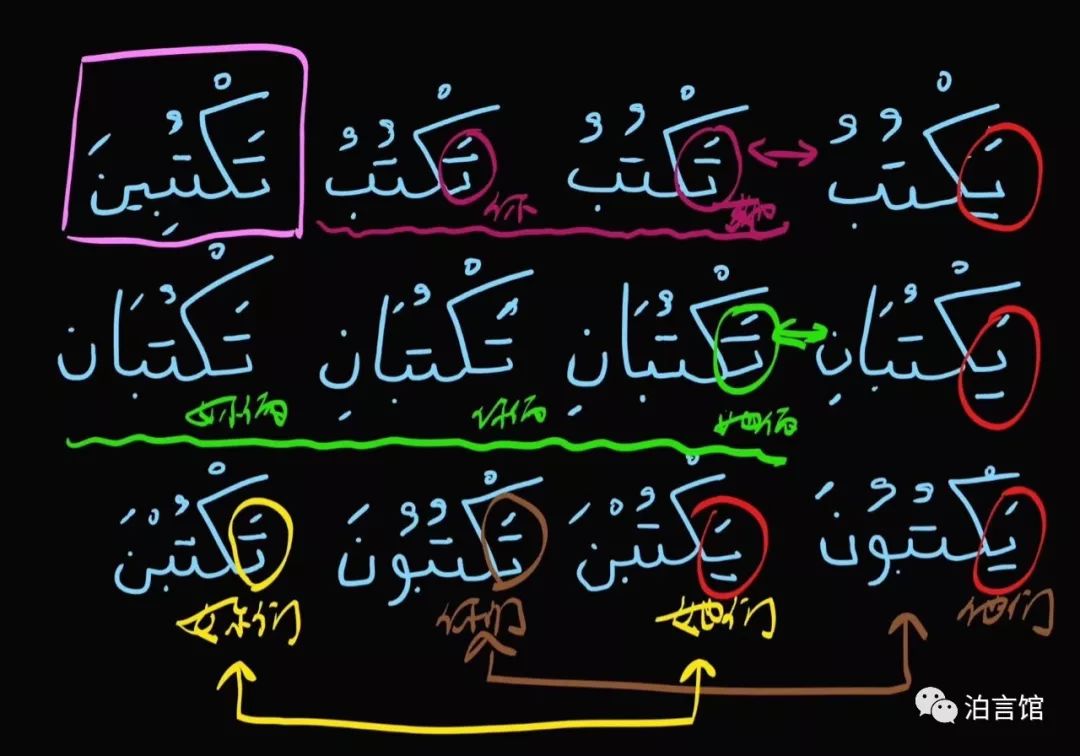 يَكْتُبُ تَكْتُبُ تَكْتُبُ تَكْتُبِينَ
你 她
يَكْتُبَانِ تَكْتُبَانِ تَكْتُبَانِ تَكْتُبَان
妳俩 你俩 她俩
يَكْتُبُونَ يَكْتُبْنَ تَكْتُبُونَ تَكْتُبْنَ
妳们 你们 她们 他们
泊言馆